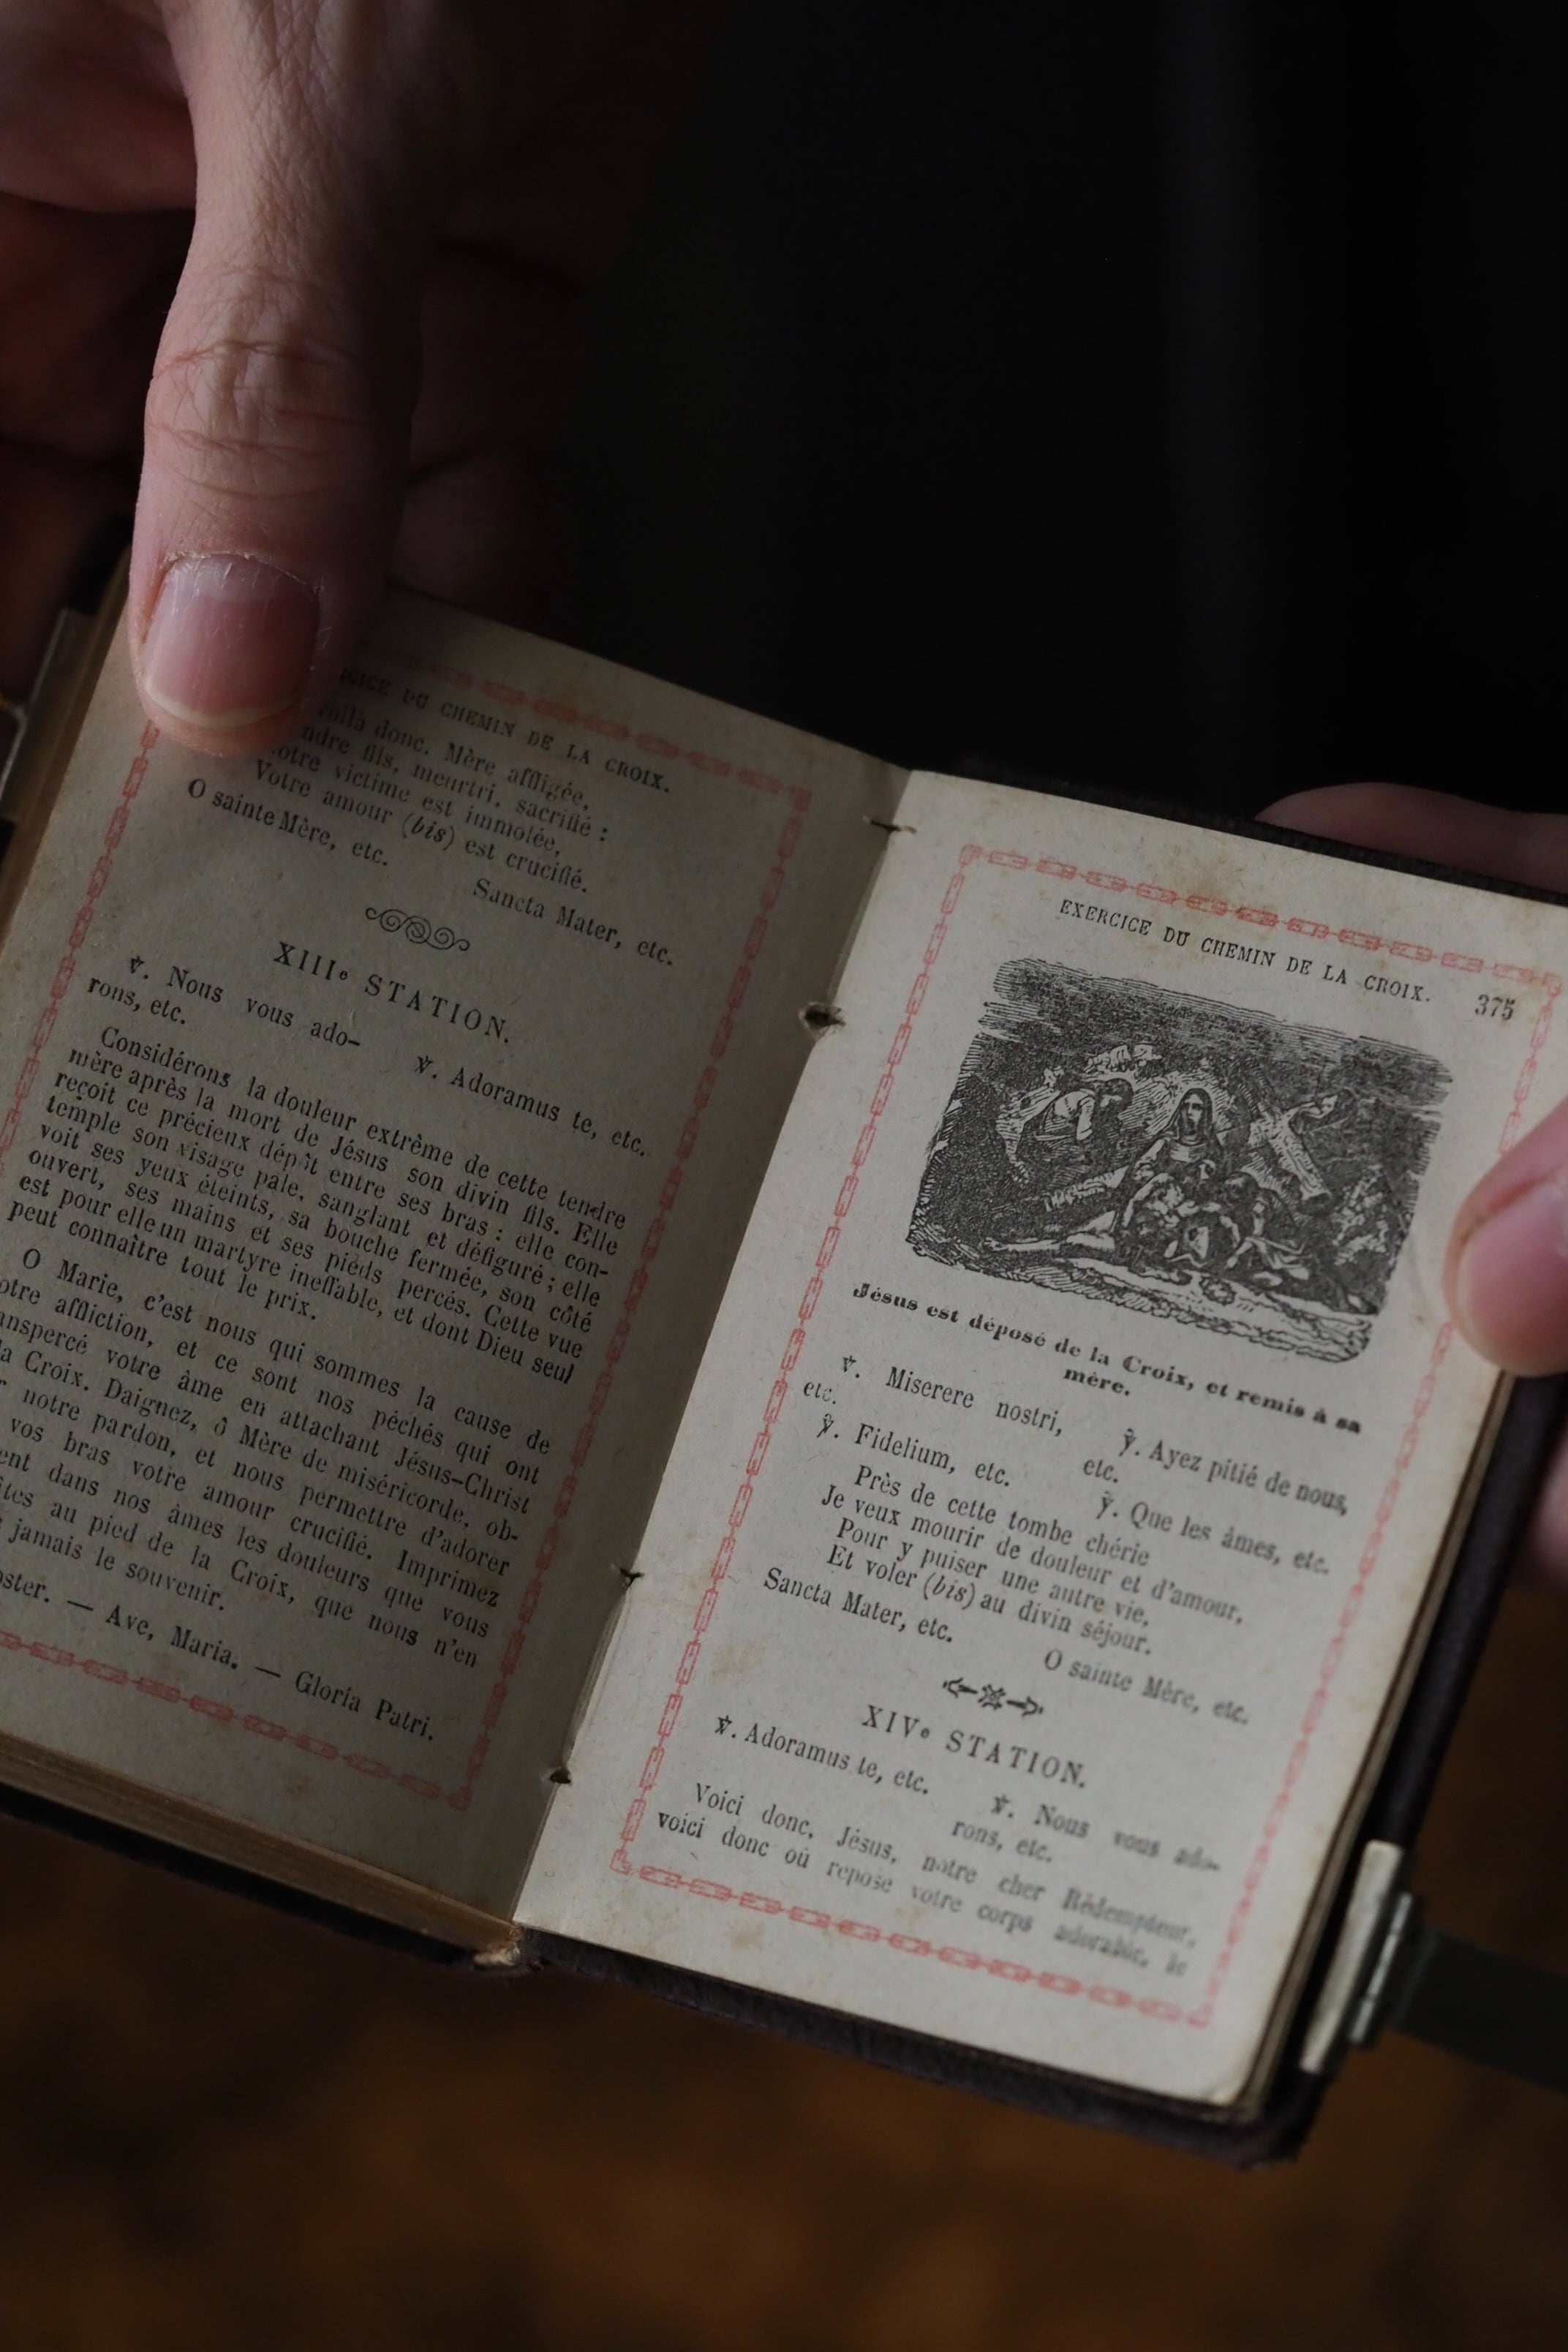 DU CHEMIN DE LA CROIX.
donc. Mère affligée,
fils, meurtri, sacrifié :
victime est immolée,
Votre amour (bis) est crucifié.
O sainte Mère, etc.
Sancta Mater, etc.
XIIIe STATION.
℣. Nous vous ado-
rons, etc.
℣. Adoramus te, etc.
Considérons la douleur extrême de cette tendre
mère après la mort de Jésus son divin fils. Elle
reçoit ce précieux dépôt entre ses bras : elle con-
temple son visage pâle, sanglant et défiguré ; elle
voit ses yeux éteints, sa bouche fermée, son côté
ouvert, ses mains et ses pieds percés. Cette vue
est pour elle un martyre ineffable, et dont Dieu seul
peut connaître tout le prix.
O Marie, c'est nous qui sommes la cause de
affliction, et ce sont nos péchés qui ont
votre âme en attachant Jésus-Christ
Croix. Daignez, ô Mère de miséricorde, ob-
notre pardon, et nous permettre d'adorer
vos bras votre amour crucifié. Imprimez
dans nos âmes les douleurs que vous
au pied de la Croix, que nous n'en
jamais le souvenir.
— Ave, Maria. — Gloria Patri.
EXERCICE DU CHEMIN DE LA CROIX. 375
Jésus est déposé de la Croix, et remis à sa
mère.
℣. Miserere nostri,
etc.
℣. Ayez pitié de nous,
etc.
℣. Fidelium, etc.
℣. Que les âmes, etc.
Près de cette tombe chérie
Je veux mourir de douleur et d'amour,
Pour y puiser une autre vie,
Et voler (bis) au divin séjour.
Sancta Mater, etc.
O sainte Mère, etc.
XIVe STATION.
℣. Adoramus te, etc.
℣. Nous vous ado-
rons, etc.
Voici donc, Jésus, notre cher Rédempteur,
voici donc où repose votre corps adorable, le